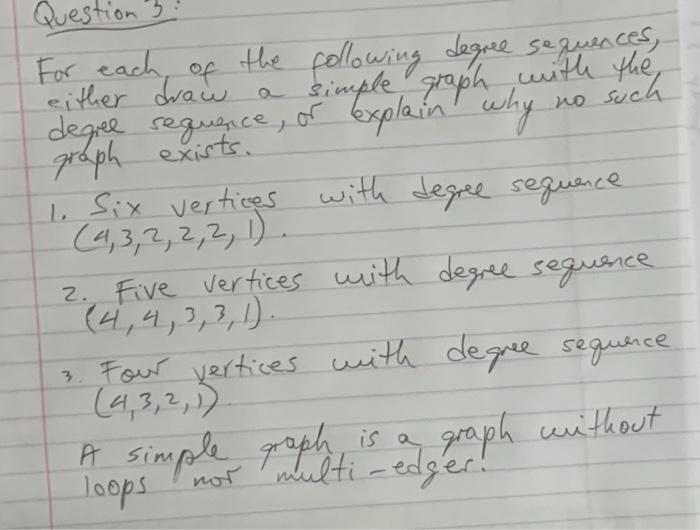 Question 3:
For each of the following degree sequences,
either draw a simple graph with the
degree sequence, or explain why no such
graph exists.
1. Six vertices with degree sequence
(4,3,2,2,2,1).
2. Five vertices with degree sequence
(4,4,3,3,1).
3. Four vertices with degree sequence
(4,3,2,1)
A simple graph is a graph without
loops nor multi-edges.